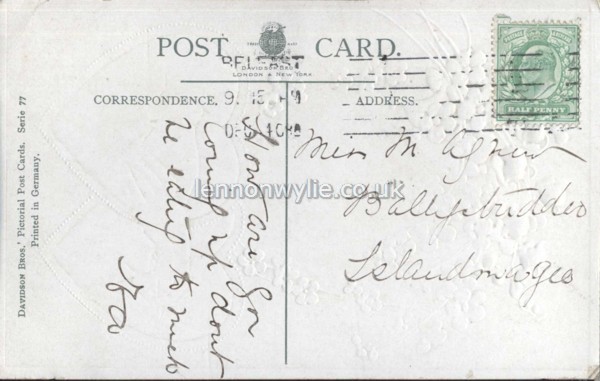 POST CARD.
DAVIDSON BROS.
LONDON & NEW YORK
BELFAST
9. 15 PM
CORRESPONDENCE.
ADDRESS.
HALF PENNY
DAVIDSON BROS.' Pictorial Post Cards, Serie 77
Printed in Germany.
How are you
coming up dont
be eating to much
Miss M Agnew
Ballystrudder
Islandmagee
lennonwylie.co.uk